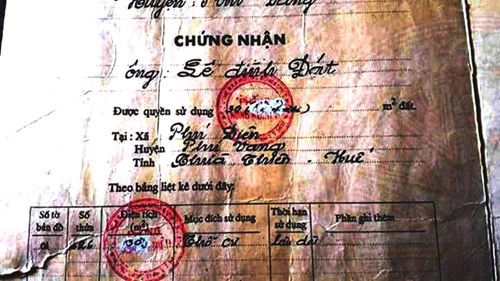 Huyện: Phú Vang
CHỨNG NHẬN
ông: Lê đình Đốt
Được quyền sử dụng m² đất.
Tại: Xã Phú Diên
Huyện Phú Vang
Tỉnh Thừa Thiên - Huế
Theo bảng liệt kê dưới đây:
Số tờ bản đồ Số thửa Diện tích (m²) Mục đích sử dụng Thời hạn sử dụng Phần ghi thêm
01 Thổ cư lâu dài